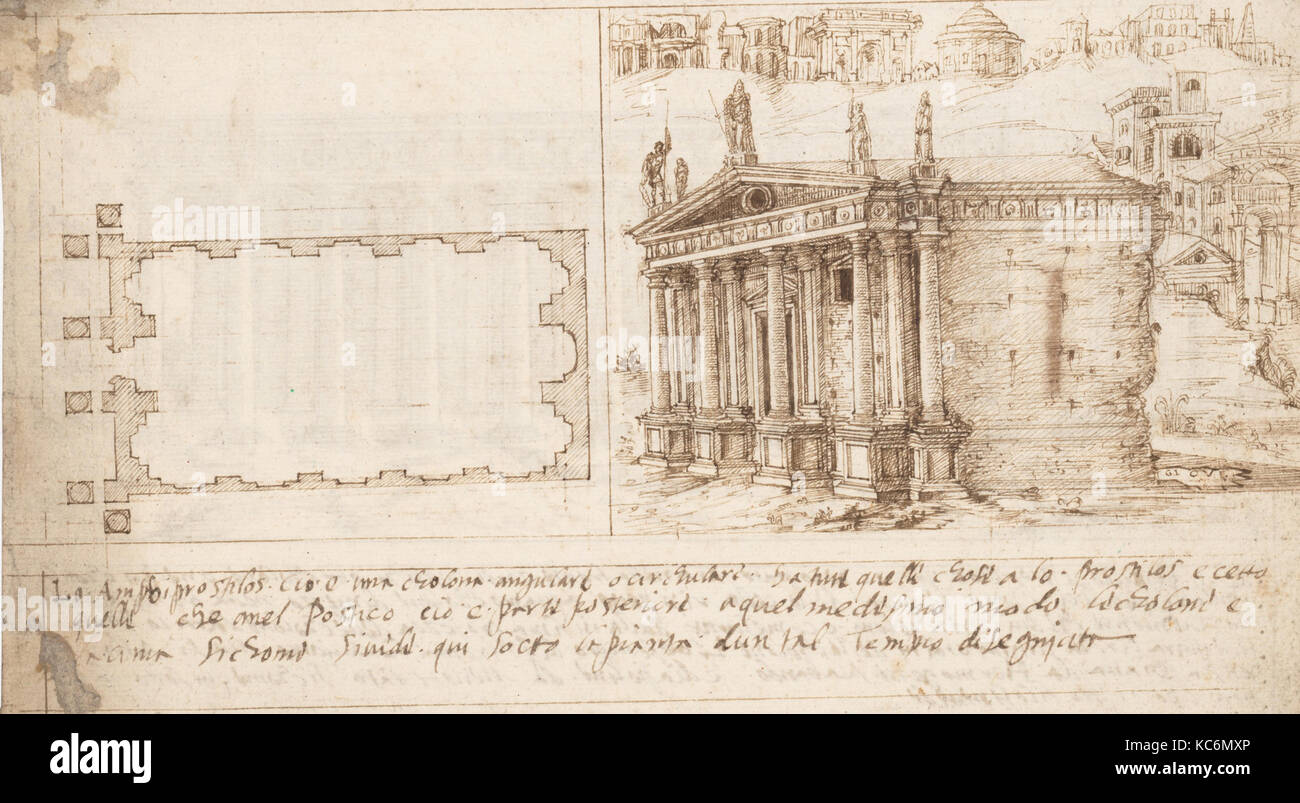 La Amphiprostilos cio e una cholona angulare o circhulare ha tute quelle chose a lo prostilos ecetto
quelle che nel Postico cio e parte posteriore a quel medesimo modo le cholone e
cima sichome si vide qui socto la pianta dun tal Tempio disegniata
alamy
www.alamy.com
Image ID: KC6MXP